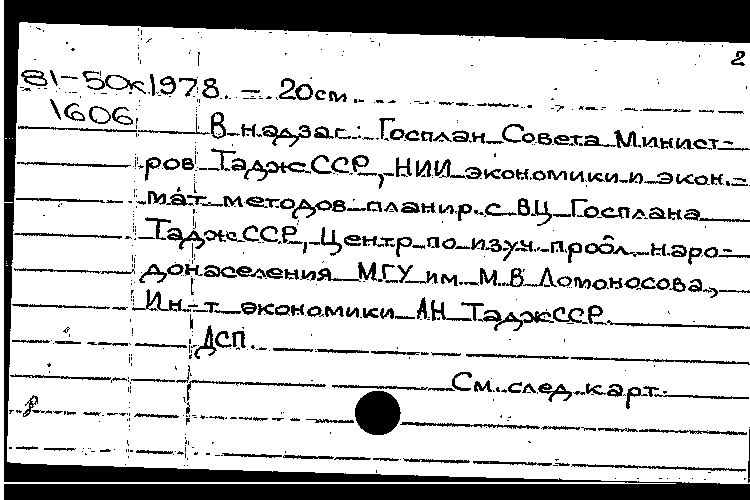 2
81-50к 1978. - 20см.
1606
В надзаг.: Госплан Совета Минист-
ров ТаджССР, НИИ экономики и экон.-
мат. методов планир. с ВЦ Госплана
ТаджССР, Центр по изуч. пробл. наро-
донаселения МГУ им. М.В. Ломоносова,
Ин-т экономики АН ТаджССР.
ДСП.
См. след. карт.